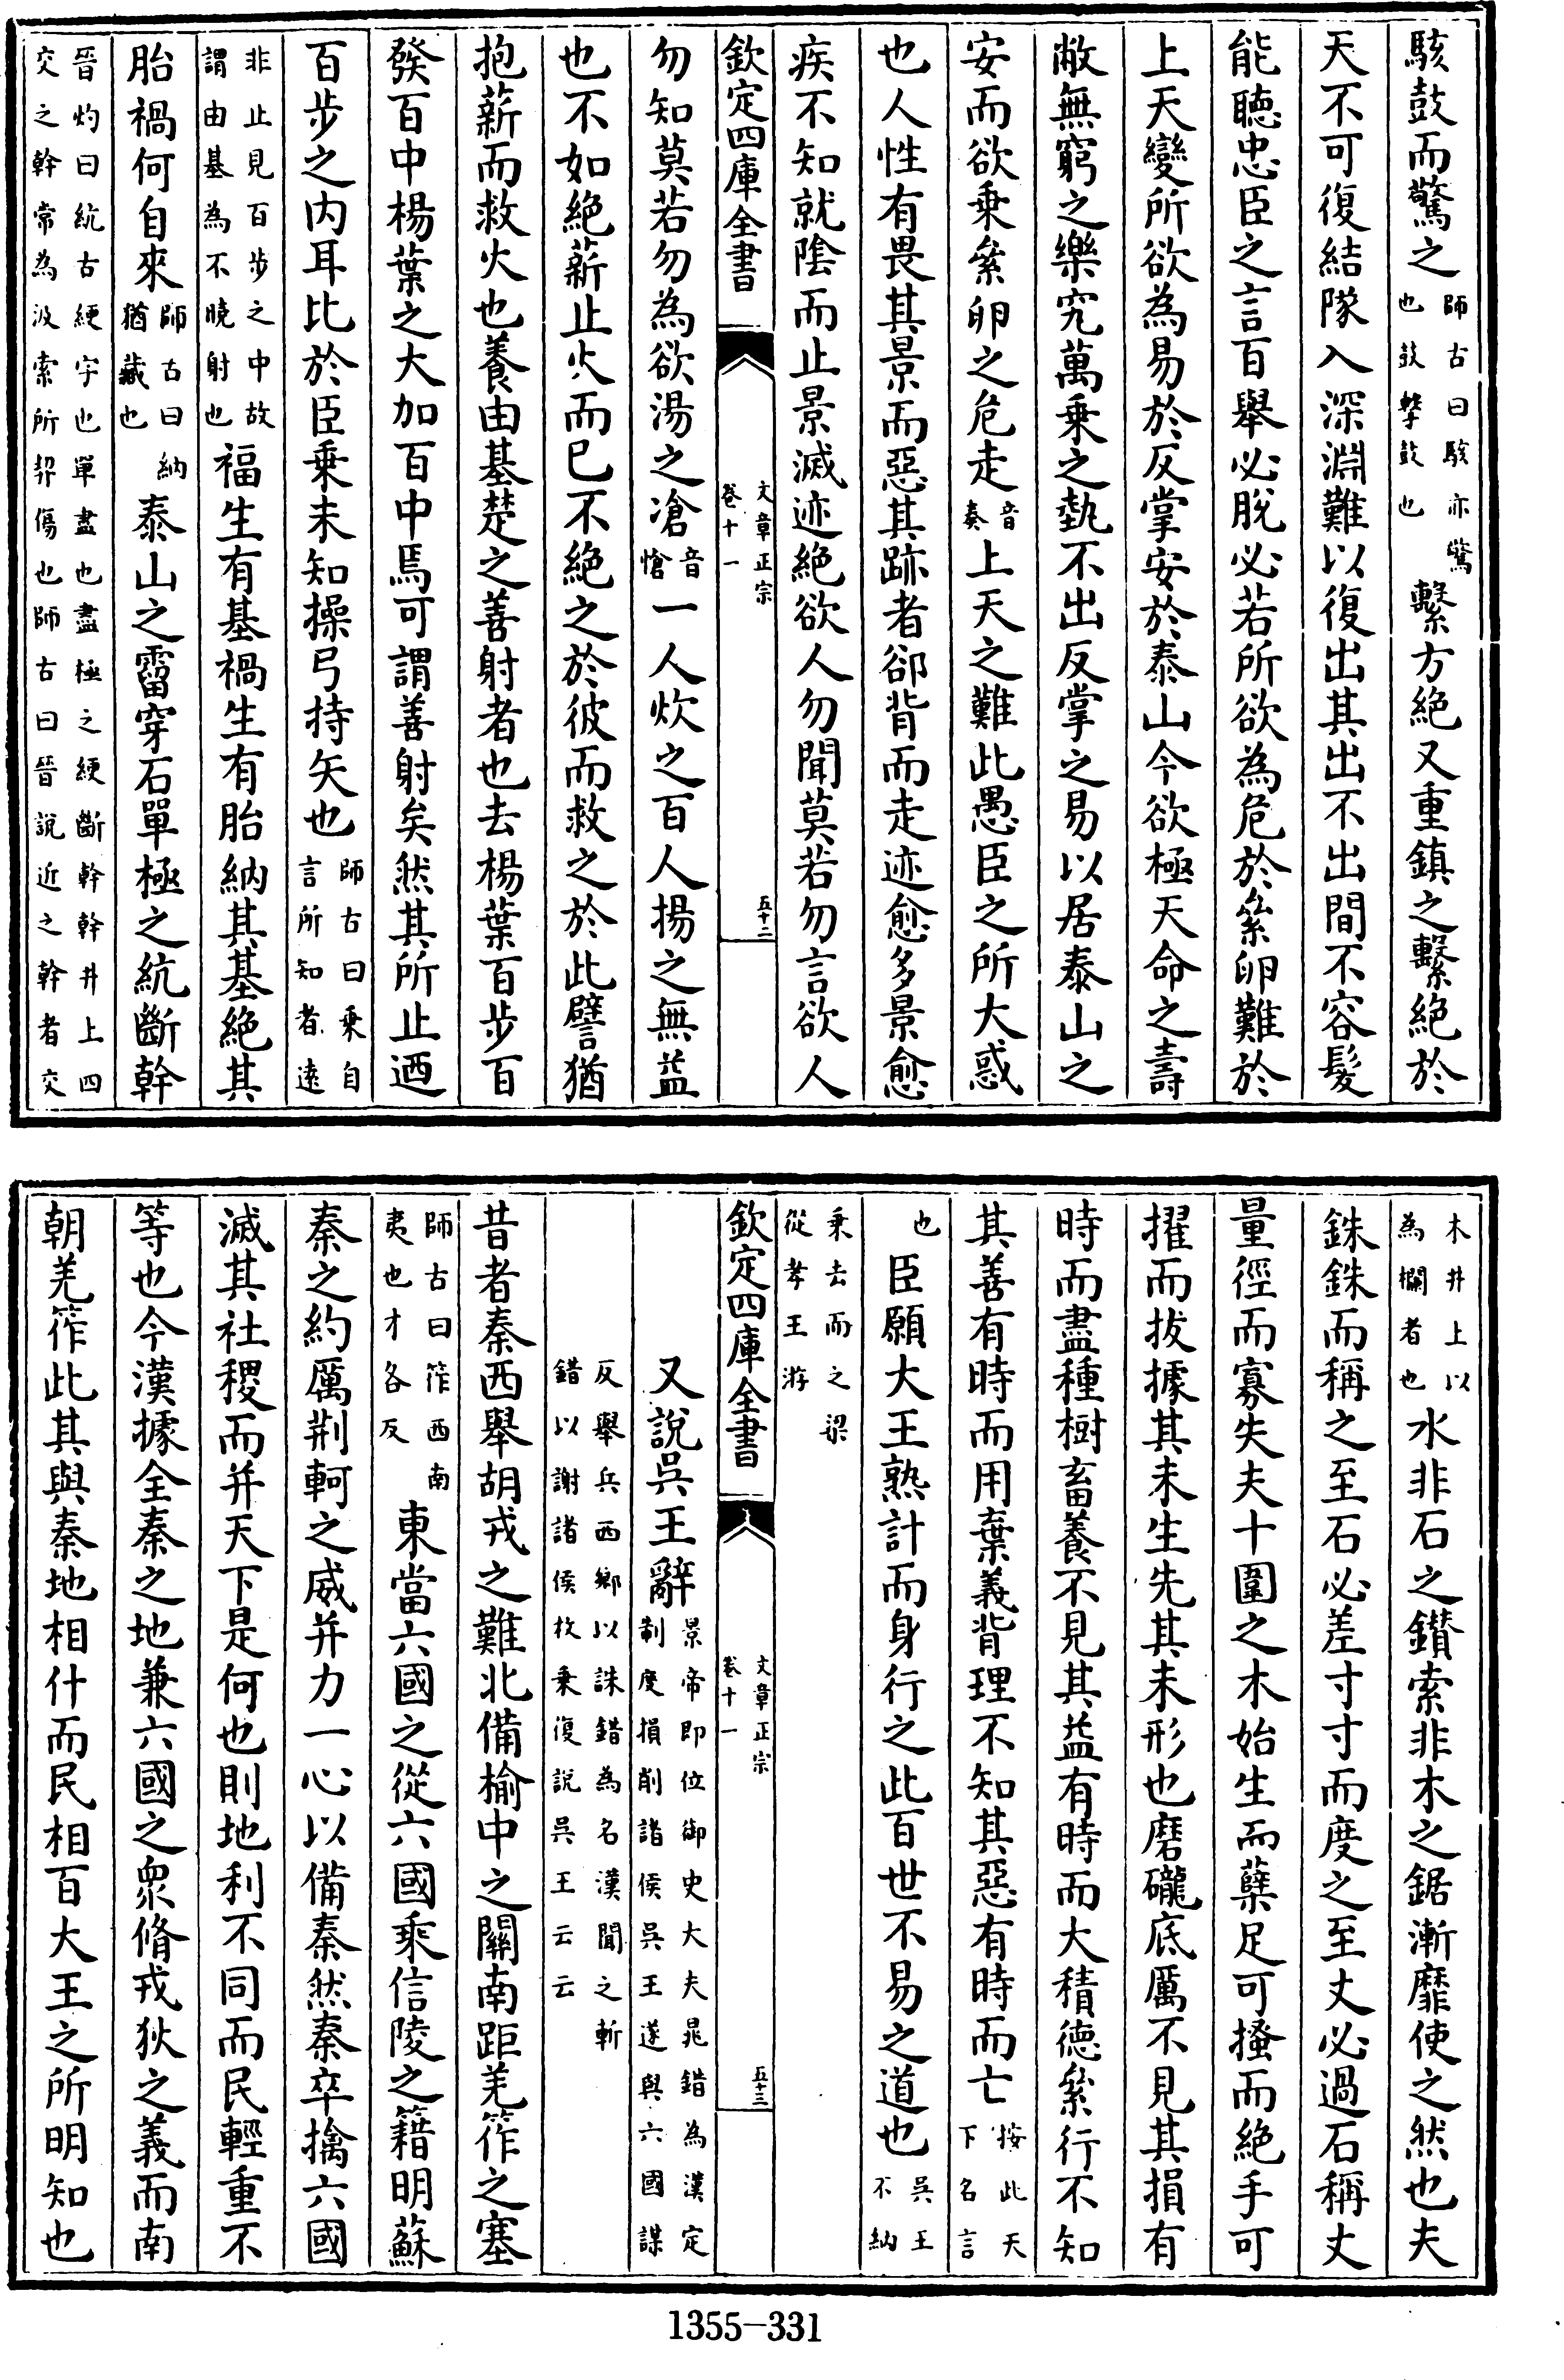 駭鼓而驚之師古曰駭亦驚也鼓擊鼓也繫方絶又重鎮之繫絶於
天不可復結隊入深淵難以復出其出不出間不容髮
能聴忠臣之言百舉必脫必若所欲為危於絫卵難於
上天變所欲為易於反掌安於泰山今欲極天命之壽
敝無窮之樂究萬乗之埶不出反掌之易以居泰山之
安而欲乗絫卵之危走音奏上天之難此愚臣之所大惑
也人性有畏其景而惡其跡者郤背而走迹愈多景愈
疾不知就隂而止景滅迹絶欲人勿聞莫若勿言欲人
欽定四庫全書 文章正宗 卷十一 五十二
勿知莫若勿為欲湯之凔音愴一人炊之百人揚之無益
也不如絶薪止火而已不絶之於彼而救之於此譬猶
抱薪而救火也養由基楚之善射者也去楊葉百步百
發百中楊葉之大加百中焉可謂善射矣然其所止迺
百步之内耳比於臣乗未知操弓持矢也師古曰乗自言所知者遠
非止見百步之中故謂由基為不曉射也福生有基禍生有胎納其基絶其
胎禍何自來師古曰納猶藏也泰山之霤穿石單極之統斷幹
晉灼曰統古綆字也單盡也盡極之綆斷幹幹井上四交之幹常為汲索所契傷也師古曰晉說近之幹者交
木井上以為欄者也水非石之鑚索非木之鋸漸靡使之然也夫
銖銖而稱之至石必差寸寸而度之至丈必過石稱丈
量徑而寡失夫十圍之木始生而蘖足可搔而絶手可
擢而拔據其未生先其未形也磨礲底厲不見其損有
時而盡種樹畜養不見其益有時而大積德絫行不知
其善有時而用棄義背理不知其惡有時而亡按此天下名言
也臣願大王熟計而身行之此百世不易之道也吳王不納
乗去而之梁從孝王游
欽定四庫全書 文章正宗 卷十一 五十三
又說吳王辭景帝即位御史大夫晁錯為漢定制度損削諸侯吳王遂與六國謀
反舉兵西鄉以誅錯為名漢聞之斬錯以謝諸侯枚乗復說吳王云云
昔者秦西舉胡戎之難北備榆中之關南距羌筰之塞
師古曰筰西南夷也才各反東當六國之從六國乗信陵之籍明蘇
秦之約厲荆軻之威并力一心以備秦然秦卒擒六國
滅其社稷而并天下是何也則地利不同而民輕重不
等也今漢據全秦之地兼六國之衆脩戎狄之義而南
朝羌筰此其與秦地相什而民相百大王之所明知也
1355-331